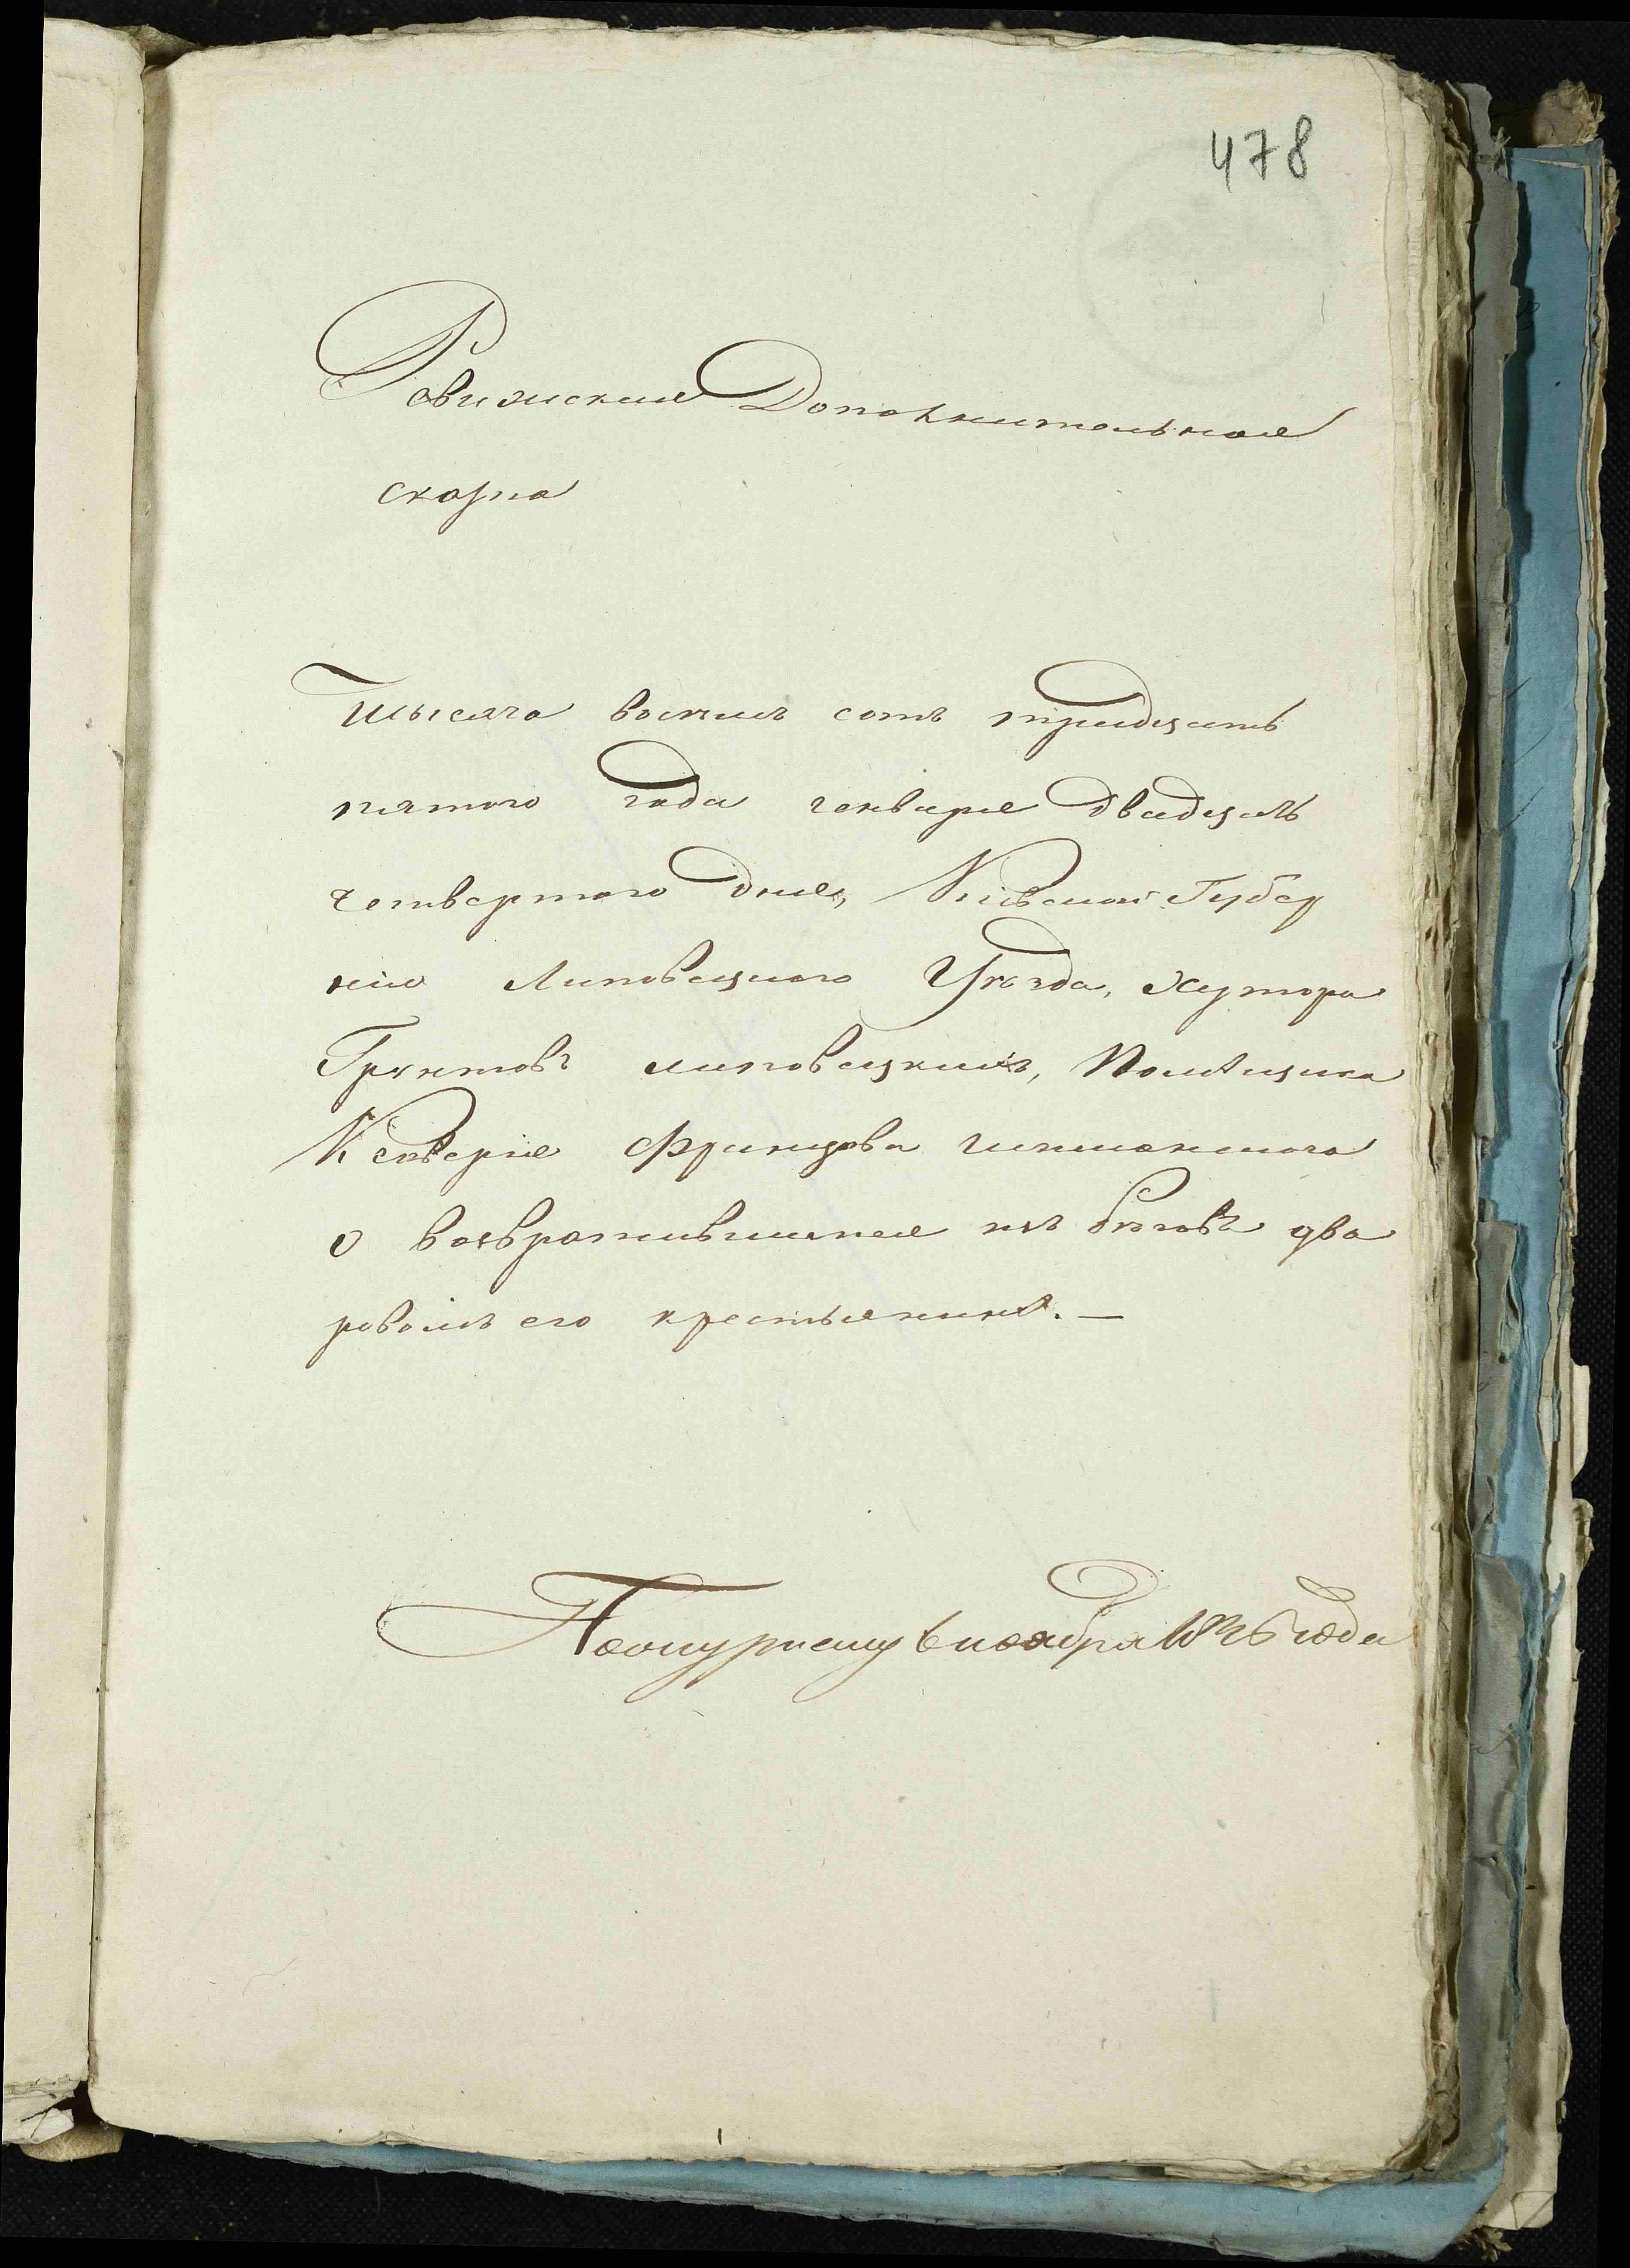 478
Ревижская Дополнительная
скаска
Тысяча восемь сотъ тридцать
пятого года генваря двадцать
четвертого дня, Кіевской Губер
ніи Липовецкого Уѣзда, Хутора
Грунтовъ липовецкихъ, Помѣщика
Ксаверія Францова
о возвратившимся изъ бѣговъ два
ровомъ его крестьянинѣ. —
6 ноября года